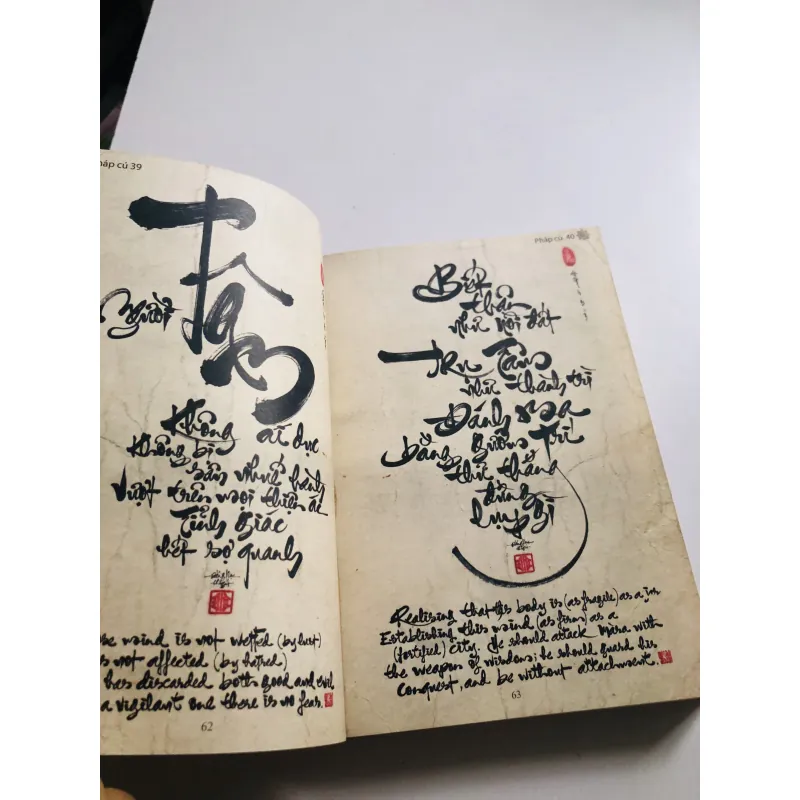 háp cú 39
Tâm
Người
không ái dục
không bị
sân nhuế hành
vượt trên mọi thiện ác
Tỉnh giác
hết sợ quanh
se mind is not wetted (by lust)
s not affected (by hatred)
has discarded both good and evil
a vigilant one there is no fear.
62
Pháp cú 40
Biết
thân
như nồi đất
Trụ Tâm
như thành trì
Đánh ma
bằng gươm Trí
thủ thắng
đừng
lụy gì
Realising that this body is (as fragile) as a
Establishing this mind (as firm) as a
(fortified) city. He should attack Mara with
the weapon of wisdom; he should guard his
conquest, and be without attachment.
63